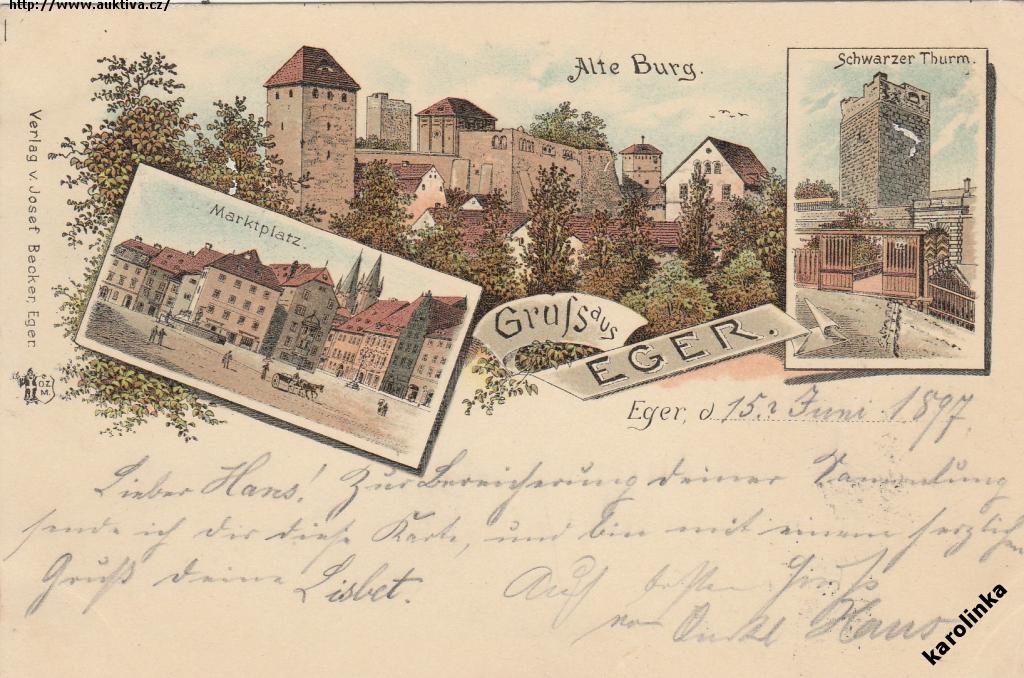 http://www.auktiva.cz/
Alte Burg.
Schwarzer Thurm.
Marktplatz.
Verlag v. Josef Becker, Eger.
OZM.
Gruſs aus
EGER.
Eger, d 15. Juni 1897.
Lieber Hans! Zur Bereicherung deiner Sammlung
sende ich dir diese Karte, und bin mit einem herzlichen
Gruß deine Lisbet.
Auch besten Gruß
von Onkel Hans
karolinka